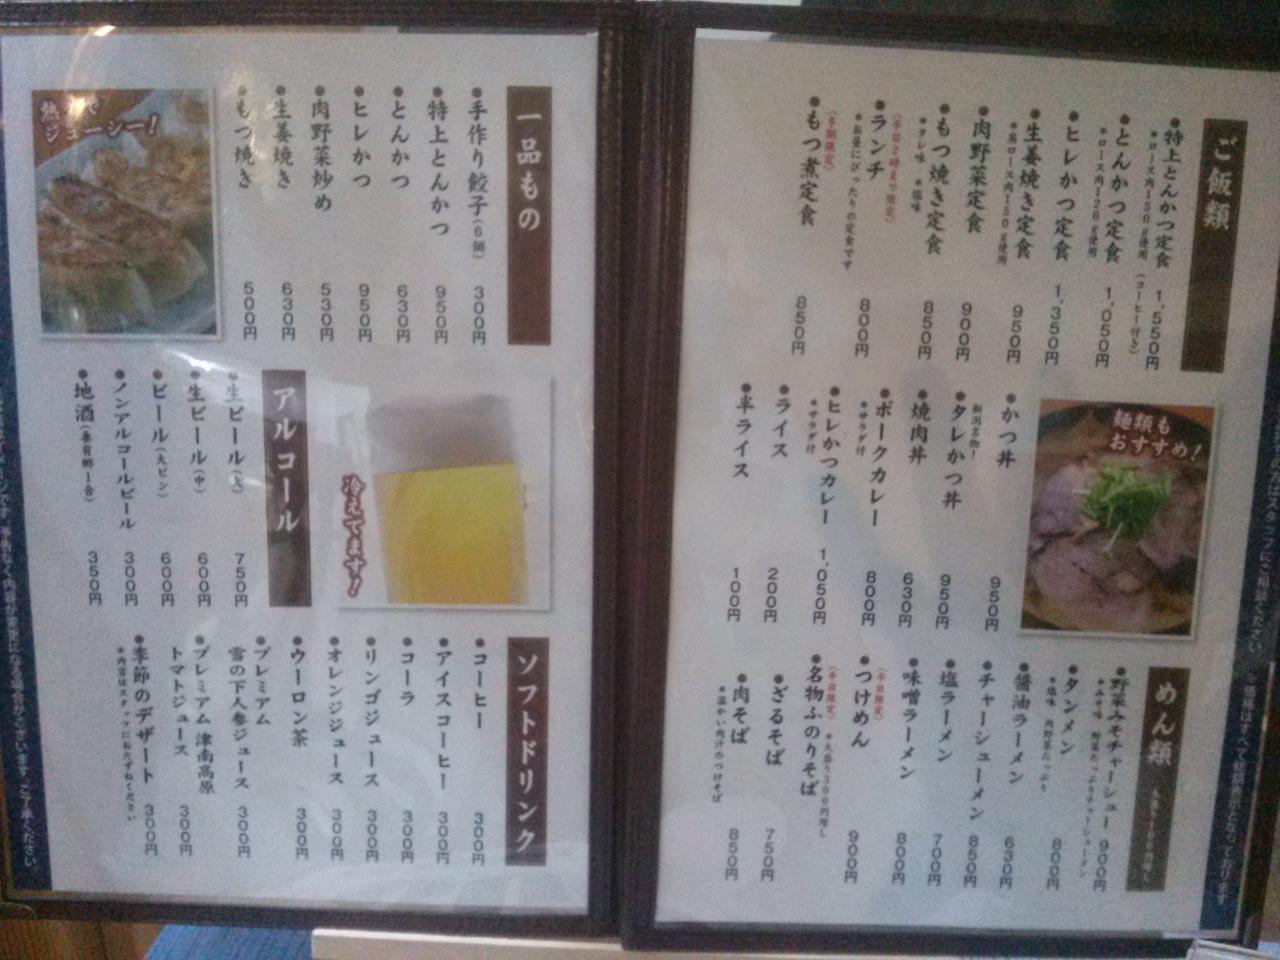 ご飯類
●特上とんかつ定食 1,550円
*ロース肉150g使用 (コーヒー付き)
●とんかつ定食 1,050円
*ロース肉120g使用
●ヒレかつ定食 1,350円
●生姜焼き定食 950円
*肩ロース肉150g使用
●肉野菜定食 900円
●もつ焼き定食 850円
*タレ味 *塩味
(平日2時まで限定)
●ランチ 800円
*お昼にぴったりの定食です
(冬期限定)
●もつ煮定食 850円
麺類も
おすすめ!
●かつ丼 950円
新潟名物!
●タレかつ丼 950円
●焼肉丼 630円
●ポークカレー 800円
*サラダ付
●ヒレかつカレー 1,050円
*サラダ付
●ライス 200円
●半ライス 100円
めん類
●野菜みそチャーシュー 900円
*みそ味 野菜たっぷりチャーシューメン
●タンメン 800円
*塩味 肉野菜たっぷり
●醤油ラーメン 630円
●チャーシューメン 850円
●塩ラーメン 700円
●味噌ラーメン 800円
(平日限定)
●つけめん 900円
(平日限定) *大盛り300円増し
●名物ふのりそば
●ざるそば 750円
●肉そば 850円
*温かい肉汁のつけそば
一品もの
●手作り餃子(6個) 300円
●特上とんかつ 950円
●とんかつ 630円
●ヒレかつ 950円
●肉野菜炒め 530円
●生姜焼き 630円
●もつ焼き 500円
ジューシー!
冷えてます!
アルコール
●生ビール(大) 750円
●生ビール(中) 600円
●ビール(大ビン) 600円
●ノンアルコールビール 300円
●地酒 350円
ソフトドリンク
●コーヒー 300円
●アイスコーヒー 300円
●コーラ 300円
●リンゴジュース 300円
●オレンジジュース 300円
●ウーロン茶 300円
●プレミアム
雪の下人参ジュース 300円
●プレミアム 津南高原
トマトジュース 300円
●季節のデザート 300円
*内容はスタッフにおたずねください